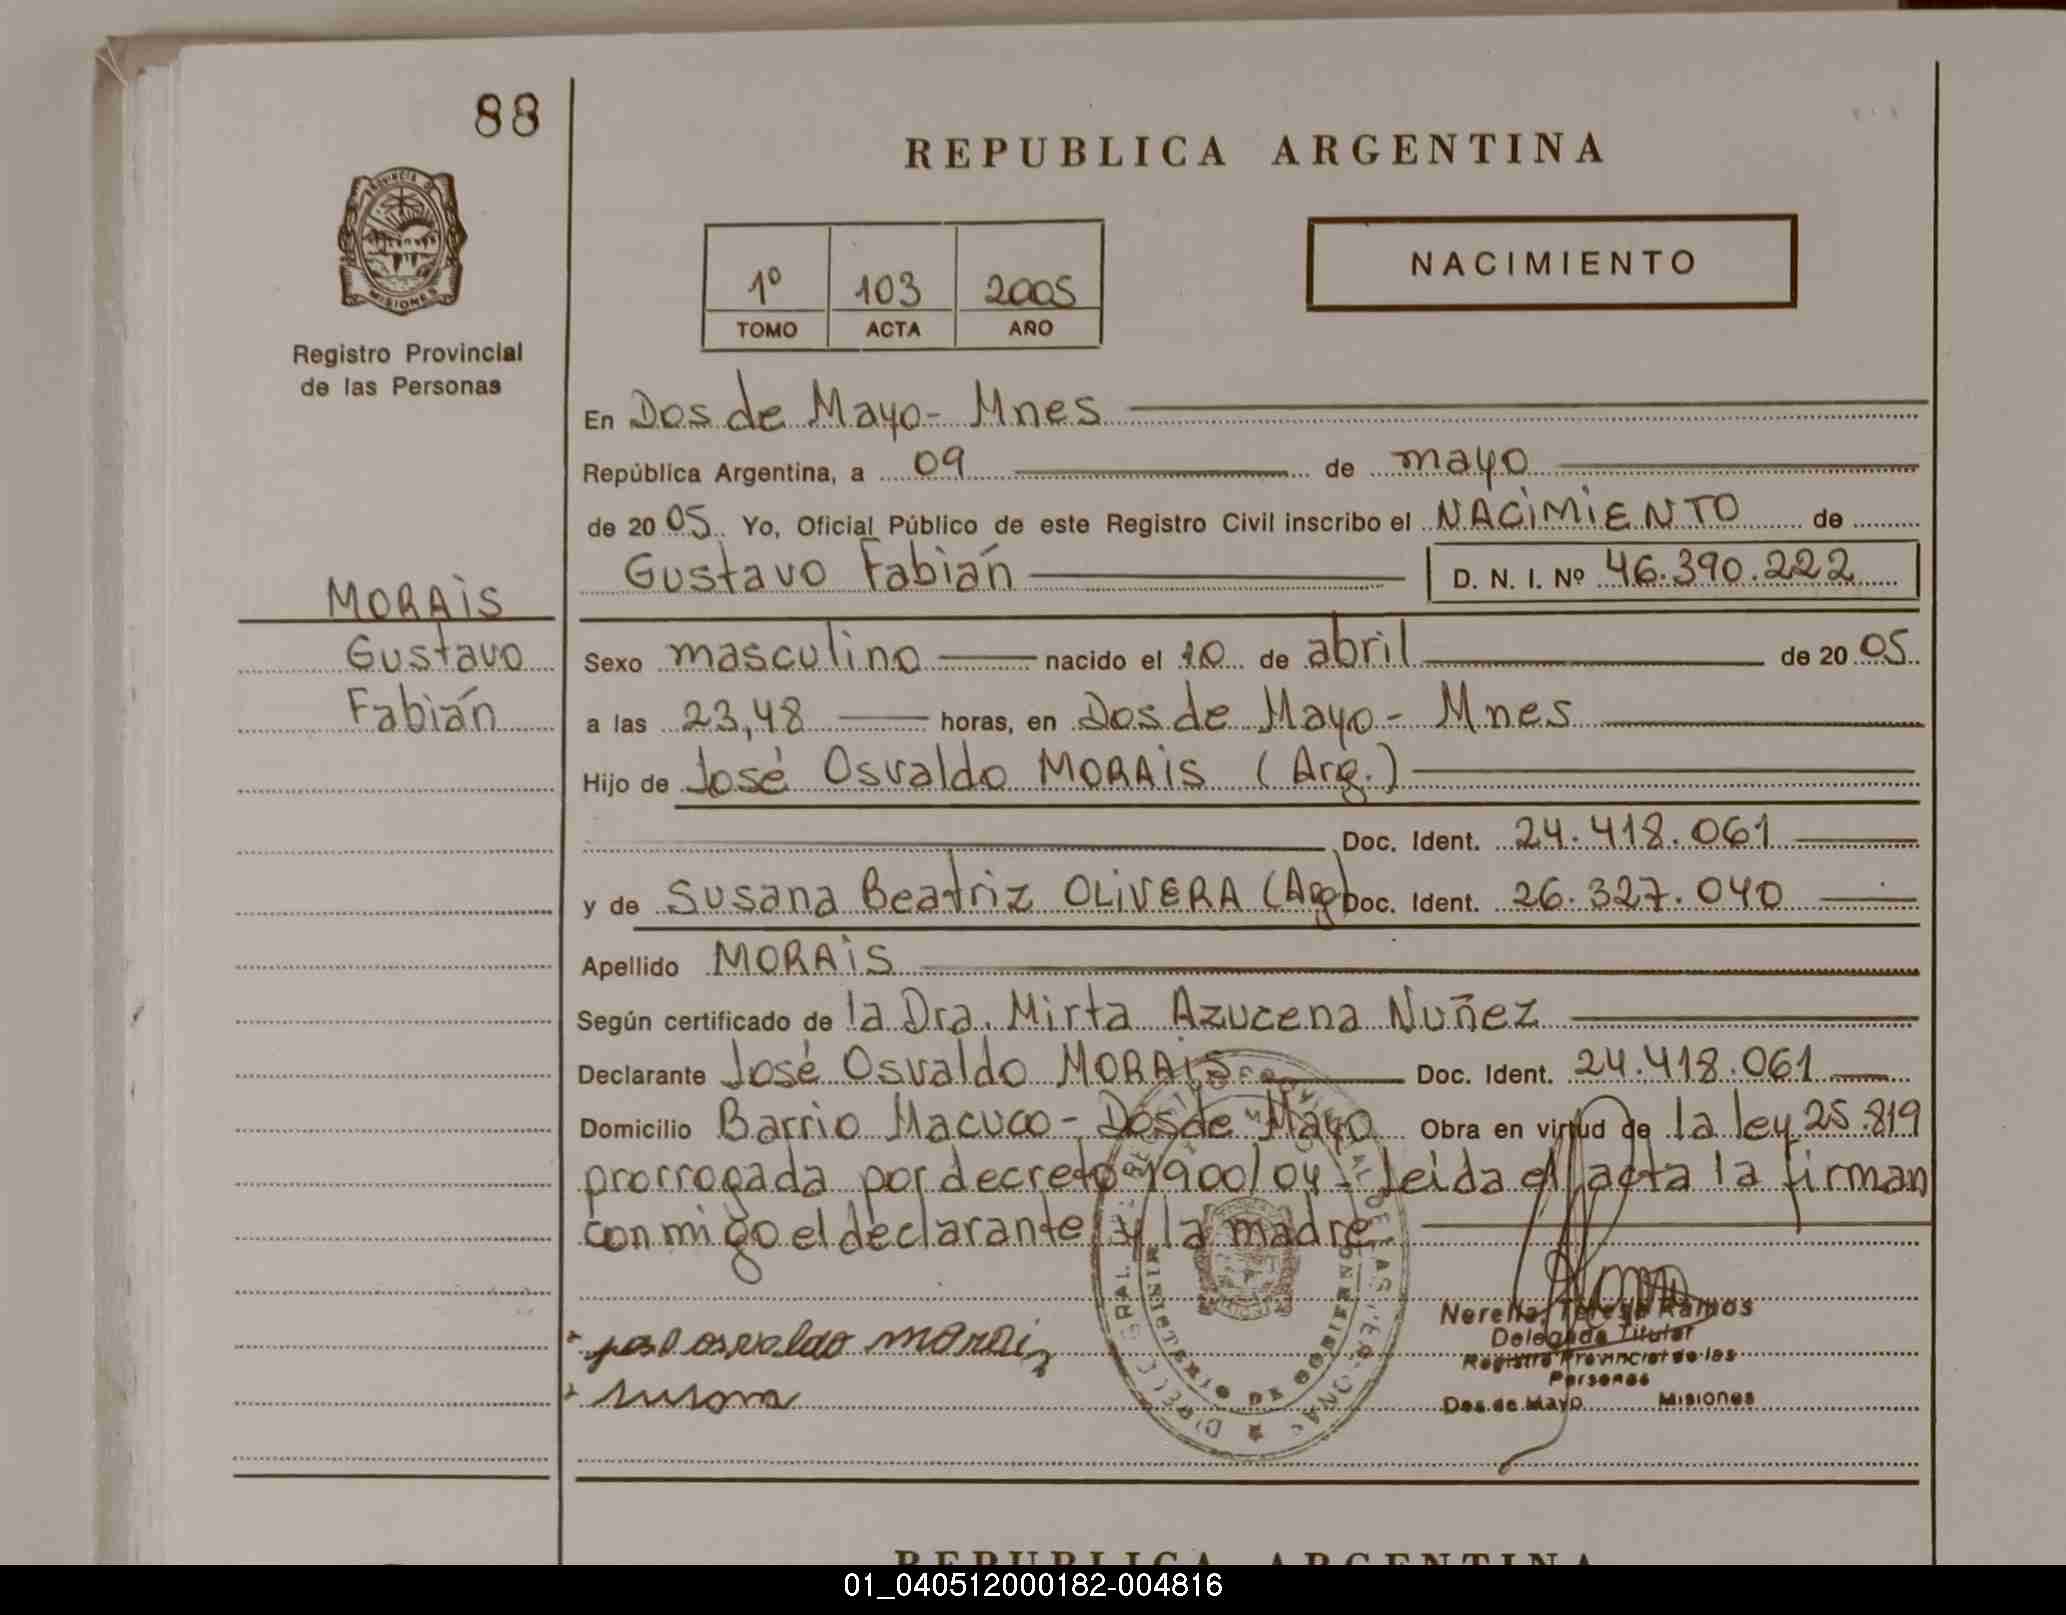 88
REPUBLICA ARGENTINA
PROVINCIA DE
MISIONES
Registro Provincial
de las Personas
NACIMIENTO
1º 103 2005
TOMO ACTA AÑO
En Dos de Mayo - Mnes
República Argentina, a 09 de mayo
de 2005 Yo, Oficial Público de este Registro Civil inscribo el NACIMIENTO de
Gustavo Fabián D. N. I. Nº 46.390.222
MORAIS
Gustavo
Fabián
Sexo masculino nacido el 10 de abril de 2005
a las 23,48 horas, en Dos de Mayo - Mnes
Hijo de José Osvaldo MORAIS (Arg.)
Doc. Ident. 24.418.061
y de Susana Beatriz OLIVERA (Arg) Doc. Ident. 26.327.040
Apellido MORAIS
Según certificado de la Dra. Mirta Azucena Nuñez
Declarante José Osvaldo MORAIS Doc. Ident. 24.418.061
Domicilio Barrio Macuco - Dos de Mayo Obra en virtud de la ley 25.819
prorrogada por decreto 1900/04 - Leida el acta la firman
conmigo el declarante y la madre
MINISTERIO DE GOBIERNO
jose osvaldo morais
susana
Nerella Teresa Ramos
Delegada Titular
Registro Provincial de las
Personas
Dos de Mayo Misiones
REPUBLICA ARGENTINA
01_040512000182-004816